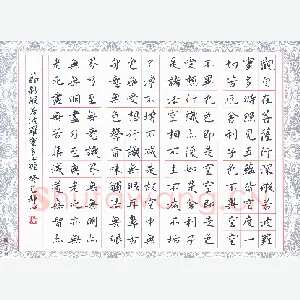 觀自在菩薩行深般若波羅
蜜多時照見五蘊皆空度一
切苦厄舍利子色不異空空
不異色色即是空空即是色
受想行識亦復如是舍利子
是諸法空相不生不滅不垢
不淨不增不減是故空中無
色無受想行識無眼耳鼻舌
身意無色聲香味觸法無眼
界乃至無意識界無無明亦
無無明盡乃至無老死亦無
老死盡無苦集滅道無智亦
節錄般若波羅蜜多心經